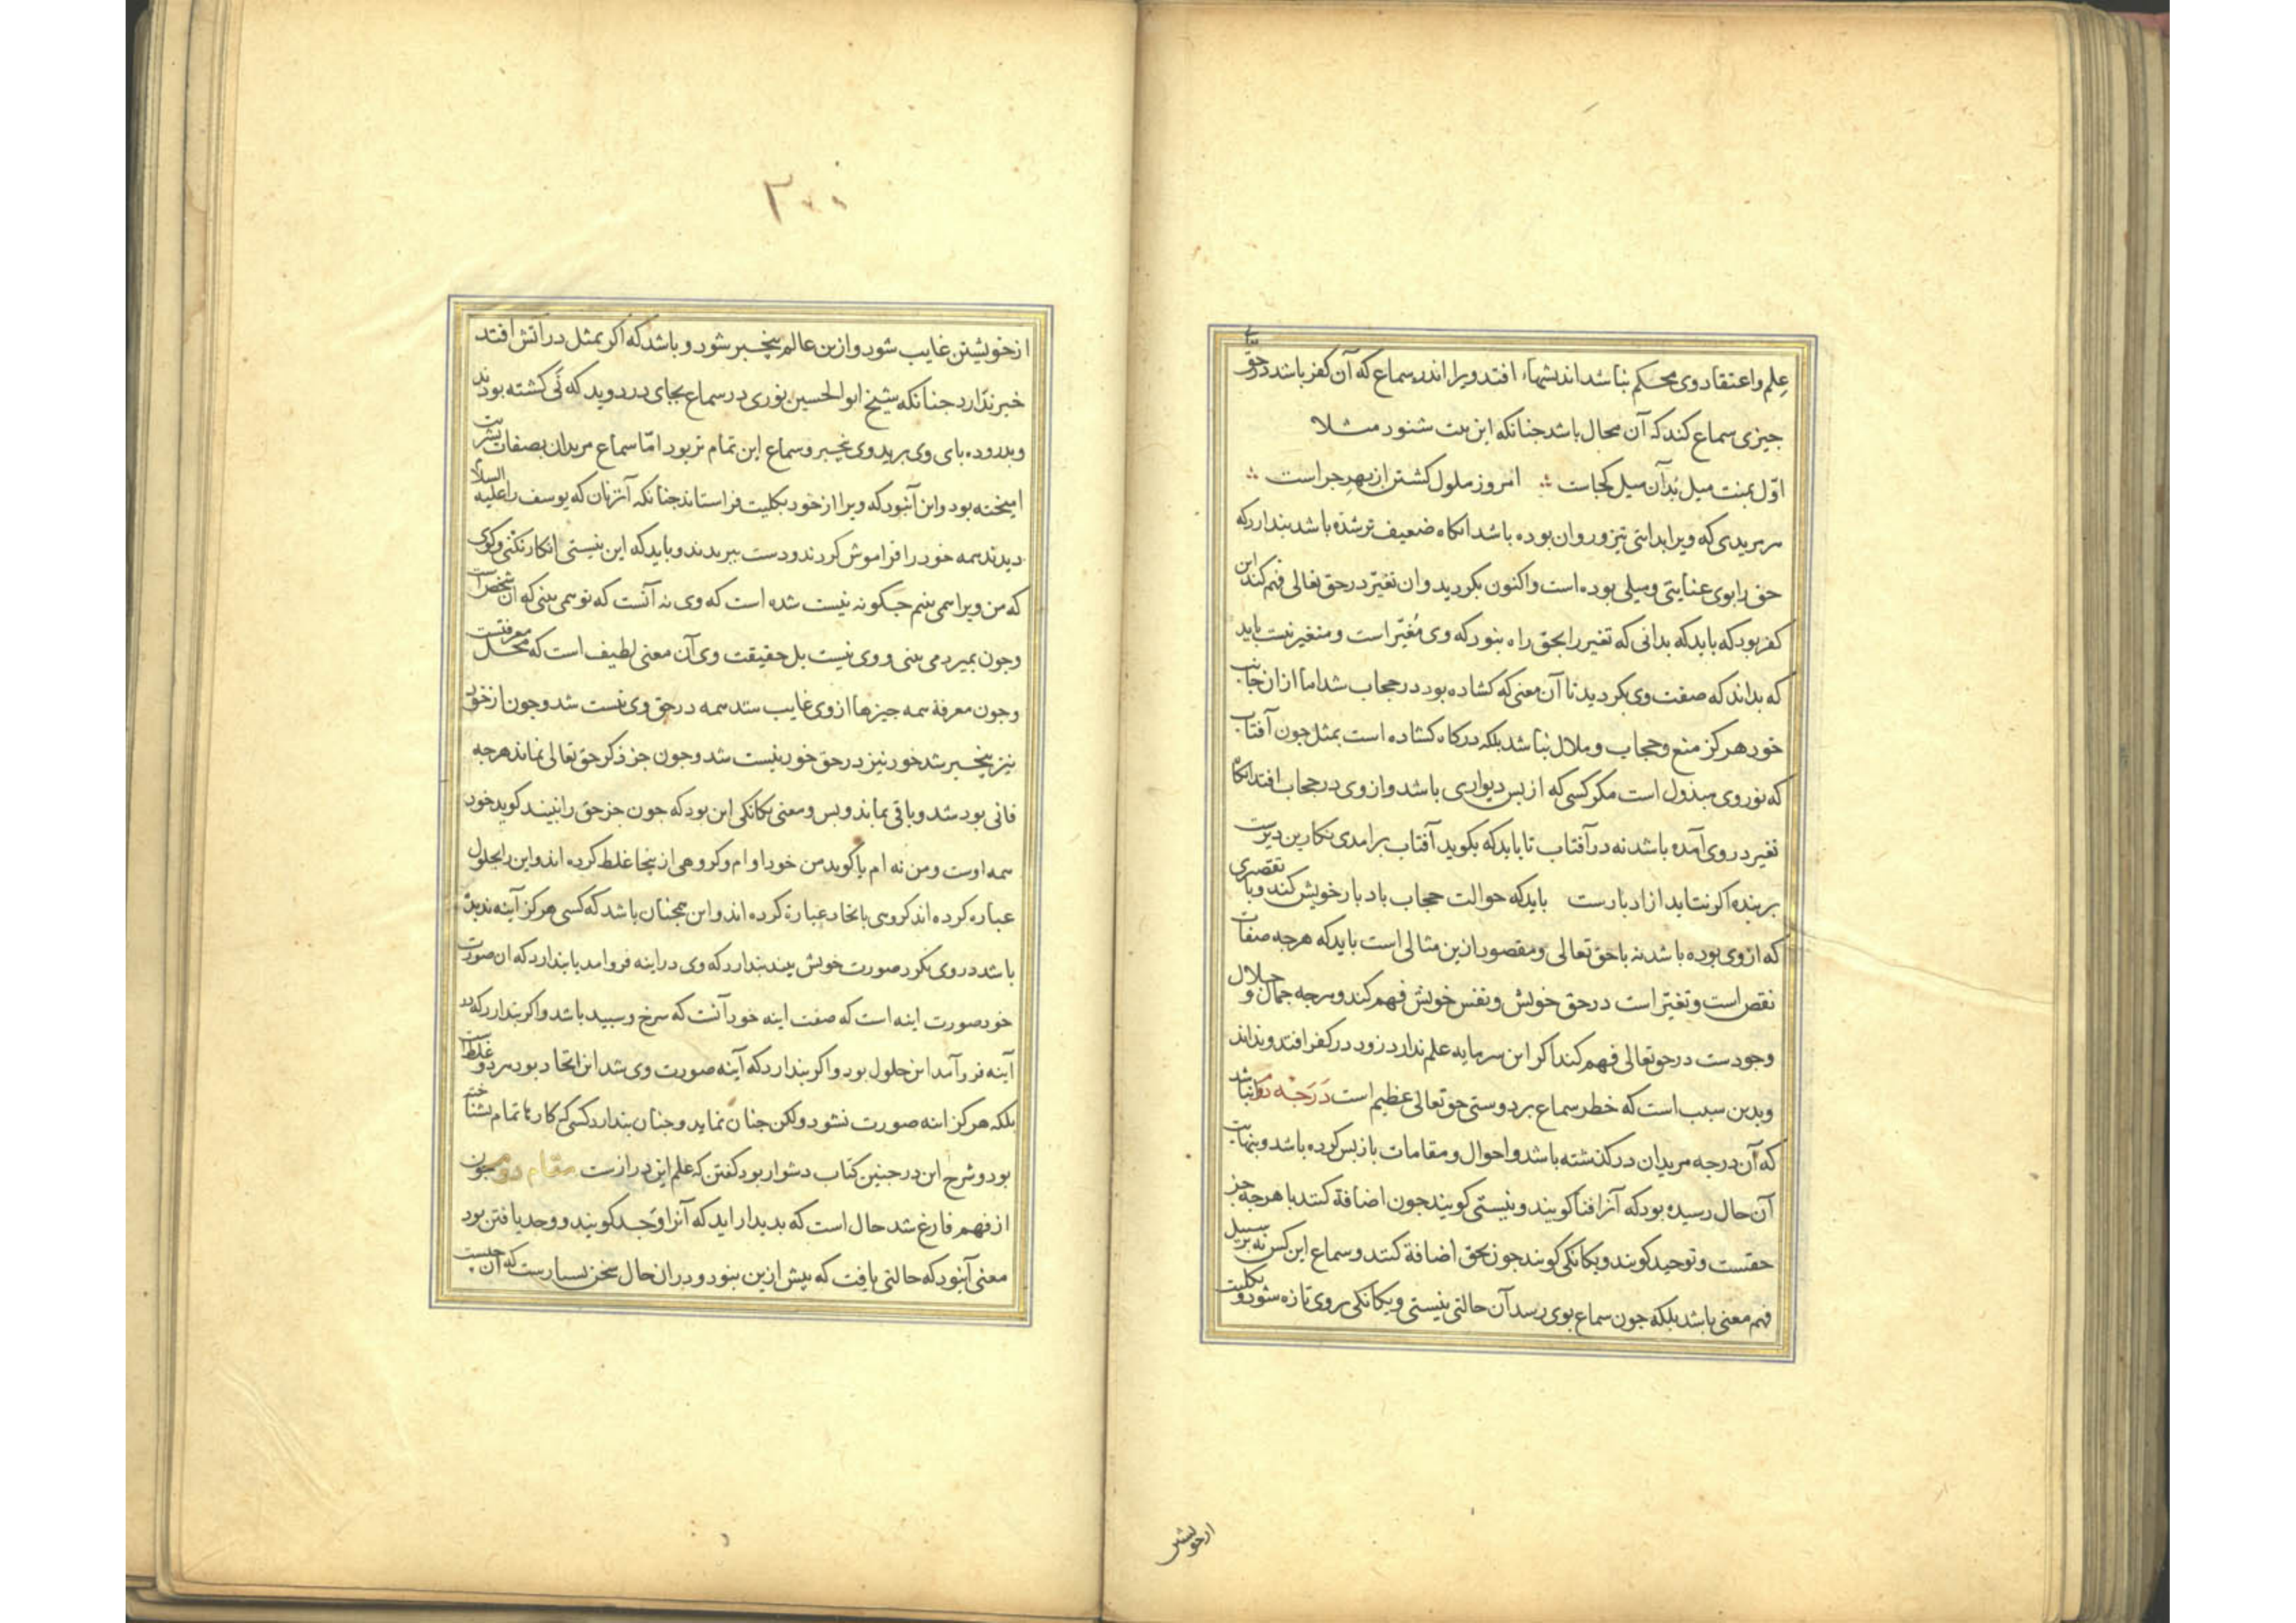 علم و اعتقاد وی محکم نباشد اندیشهاء افتد ویرا اندر سماع که آن کفر باشد در حق تعالی
جیزی سماع کند که آن محال باشد جنانکه این بیت شنود مثلا
اوّل بمنت میل بُد آن میل کجاست امروز ملول کشتن از بهر جراست
هر مریدی که ویرا بدایتی تیز و روان بوده باشد انکاه ضعیف تر شده باشد بندارد که
حق را بوی عنایتی و میلی بوده است و اکنون بکردید و ان تغیّر در حق تعالی فهم کند این
کفر بود که باید که بدانی که تغیر را بحق راه نبود که وی مُغیّر است و متغیر نیست باید
که بداند که صفت وی بکردید تا آن معنی که کشاده بود در حجاب شد اما از ان جانب
خود هرکز منع و حجاب و ملال نباشد بلکه درکاه کشاده است بمثل جون آفتاب
که نور وی مبذول است مکر کسی که از بس دیواری باشد و از وی در حجاب افتد انکاه
تغیر در وی آمده باشد نه در آفتاب تا باید که بکوید آفتاب برامدی نکارین دیرست
بر بنده اکر نتابد از ادبارست باید که حوالت حجاب با دبار خویش کند و با تقصیری
که از وی بوده باشد نه با حق تعالی و مقصود ازین مثالی است باید که هرجه صفات
نقص است و تغیّر است در حق خویش و نفس خویش فهم کند و هرجه جمال و جلال
وجودست در حق تعالی فهم کند اکر این سرمایه علم ندارد زود در کفر افتد و نداند
و بدین سبب است که خطر سماع بر دوستی حق تعالی عظیم است دَرَجَه دوم انباشد
که آن درجه مریدان درکذشته باشد و احوال و مقامات باز بس کرده باشد و بنهایت
آن حال رسیده بود که آنرا فنا کویند و نیستی کویند جون اضافة کنند با هرجه جز
حقست و توحید کویند و یکانکی کویند جون بحق اضافة کنند و سماع این کس نه بر سبیل
فهم معنی باشد بلکه جون سماع بوی رسد آن حالتی نیستی و یکانکی بروی تازه شود و بکلیت
از خویشتن
۳۰۰
از خویشتن غایب شود و ازین عالم بیخبر شود و باشد که اکر بمثل در آتش افتد
خبر ندارد جنانکه شیخ ابوالحسین نوری در سماع بجای در دوید که نَی کشته بودند
و بدروده بای وی برید وی بیخبر و سماع این تمام تر بود امّا سماع مریدان بصفات بشریت
امیخته بود و این آنبود که ویرا از خود بکلیت فراستاند جنانکه آنزنان که یوسف را علیه السلام
دیدند همه خود را فراموش کردند و دست ببریدند و باید که این نیستی انکار نکنی و کوی
که من ویرا همی بینم جکونه نیست شده است که وی نه آنست که تو همی بینی که ان شخص است
وجون بمیرد می بینی و وی نیست بل حقیقت وی آن معنی لطیف است که محل معرفتست
وجون معرفة همه جیزها از وی غایب شد همه در حق وی نیست شد وجون از خود
نیز بیخبر شد خود نیز در حق خود نیست شد وجون جز ذکر حق تعالی نماند هرجه
فانی بود شد و باقی بماند و بس و معنی یکانکی این بود که جون جز حق را نبیند کوید خود
همه اوست و من نه ام یا کوید من خود او ام و کروهی از ینجا غلط کرده اند و این را بحلول
عباره کرده اند کروهی باتحاد عبارة کرده اند و این همجنان باشد که کسی هرکز آینه ندیده
باشد در وی نکرد صورت خویش بیند بندارد که وی در اینه فروامد یا بندارد که ان صورت
خود صورت اینه است که صفت اینه خود آنست که سرخ و سبید باشد واکر بندارد که در
آینه فروآمد این حلول بود و اکر بندارد که آینه صورت وی شد این اتحاد بود هر دو غلط است
بلکه هرکز اینه صورت نشود ولکن جنان نماید وجنان بندارد کسی که کارها تمام نشناخته
بود و شرح این در جنین کتاب دشوار بود کفتن که علم این درازست مقام دوم جون
از فهم فارغ شد حال است که بدیدار اید که آنرا وَجد کویند و وجد یافتن بود
معنی آنبود که حالتی یافت که بیش ازین نبود و دران حال سخن بسیارست که آن جیست